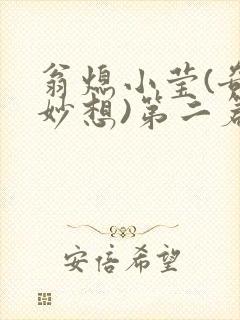 翁熄小莹(奇
妙想)第二若
安倍希望